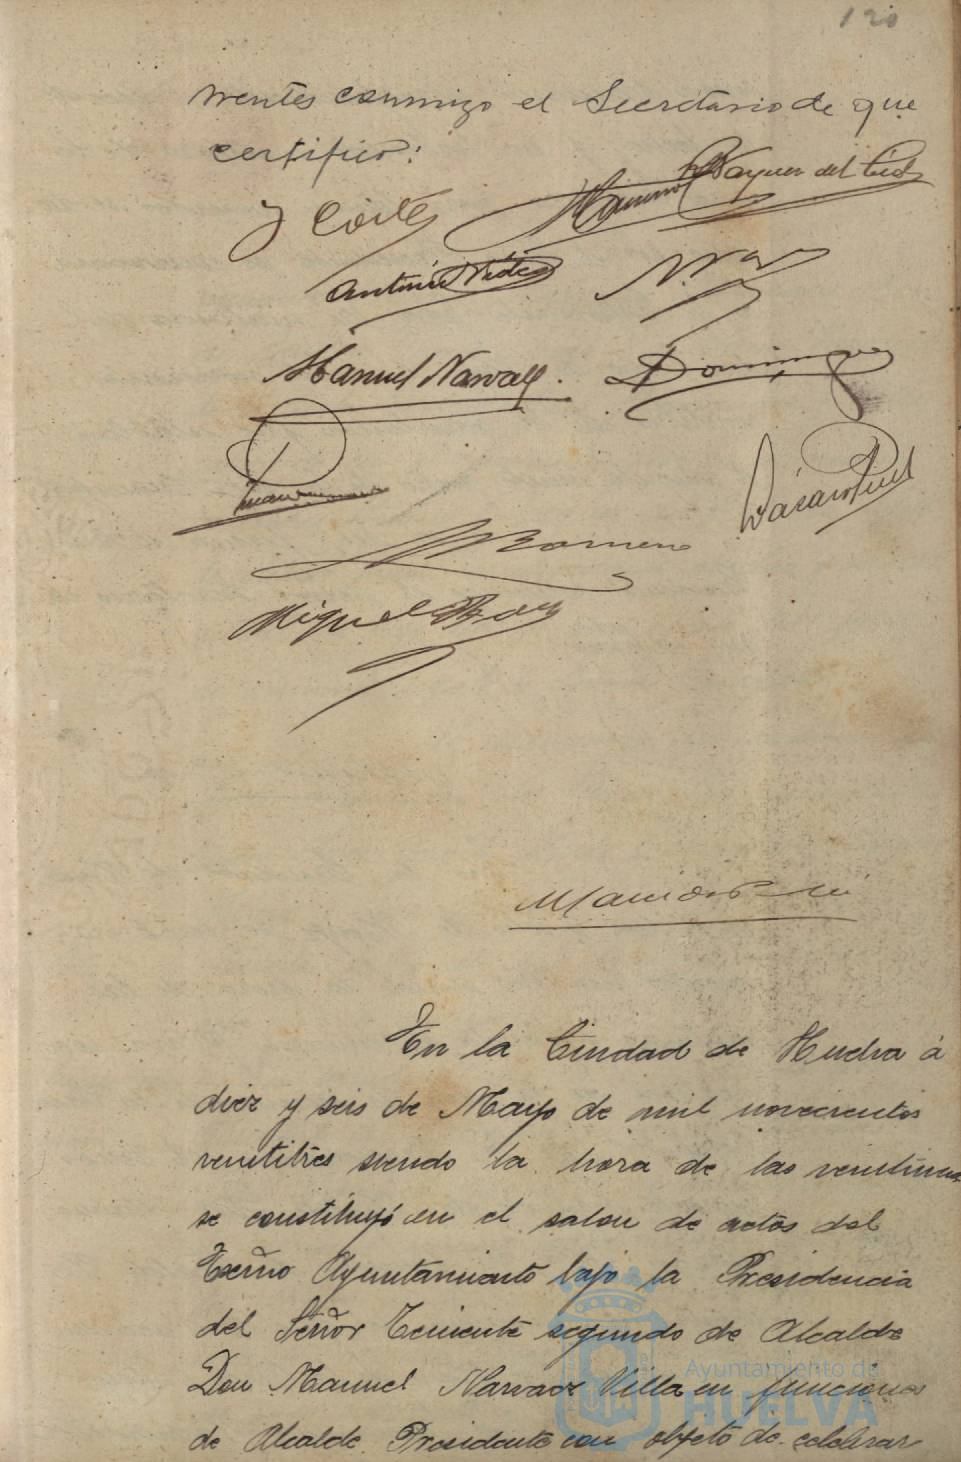 120
mentes conmigo el Secretario de que
certifico:
J Cortes
Vazquez del Cid
Antonio Vides
Manuel Narvaez.
Dominguez
Romero
Miguel
En la Ciudad de Huelva á
diez y seis de Mayo de mil novecientos
veintitrés siendo la hora de las veintiuna
se constituyó en el salon de actos del
Excmo Ayuntamiento bajo la Presidencia
del Señor Teniente segundo de Alcalde
Don Manuel Narvaez Villa en funciones
de Alcalde Presidente con objeto de celebrar
Ayuntamiento de
HUELVA